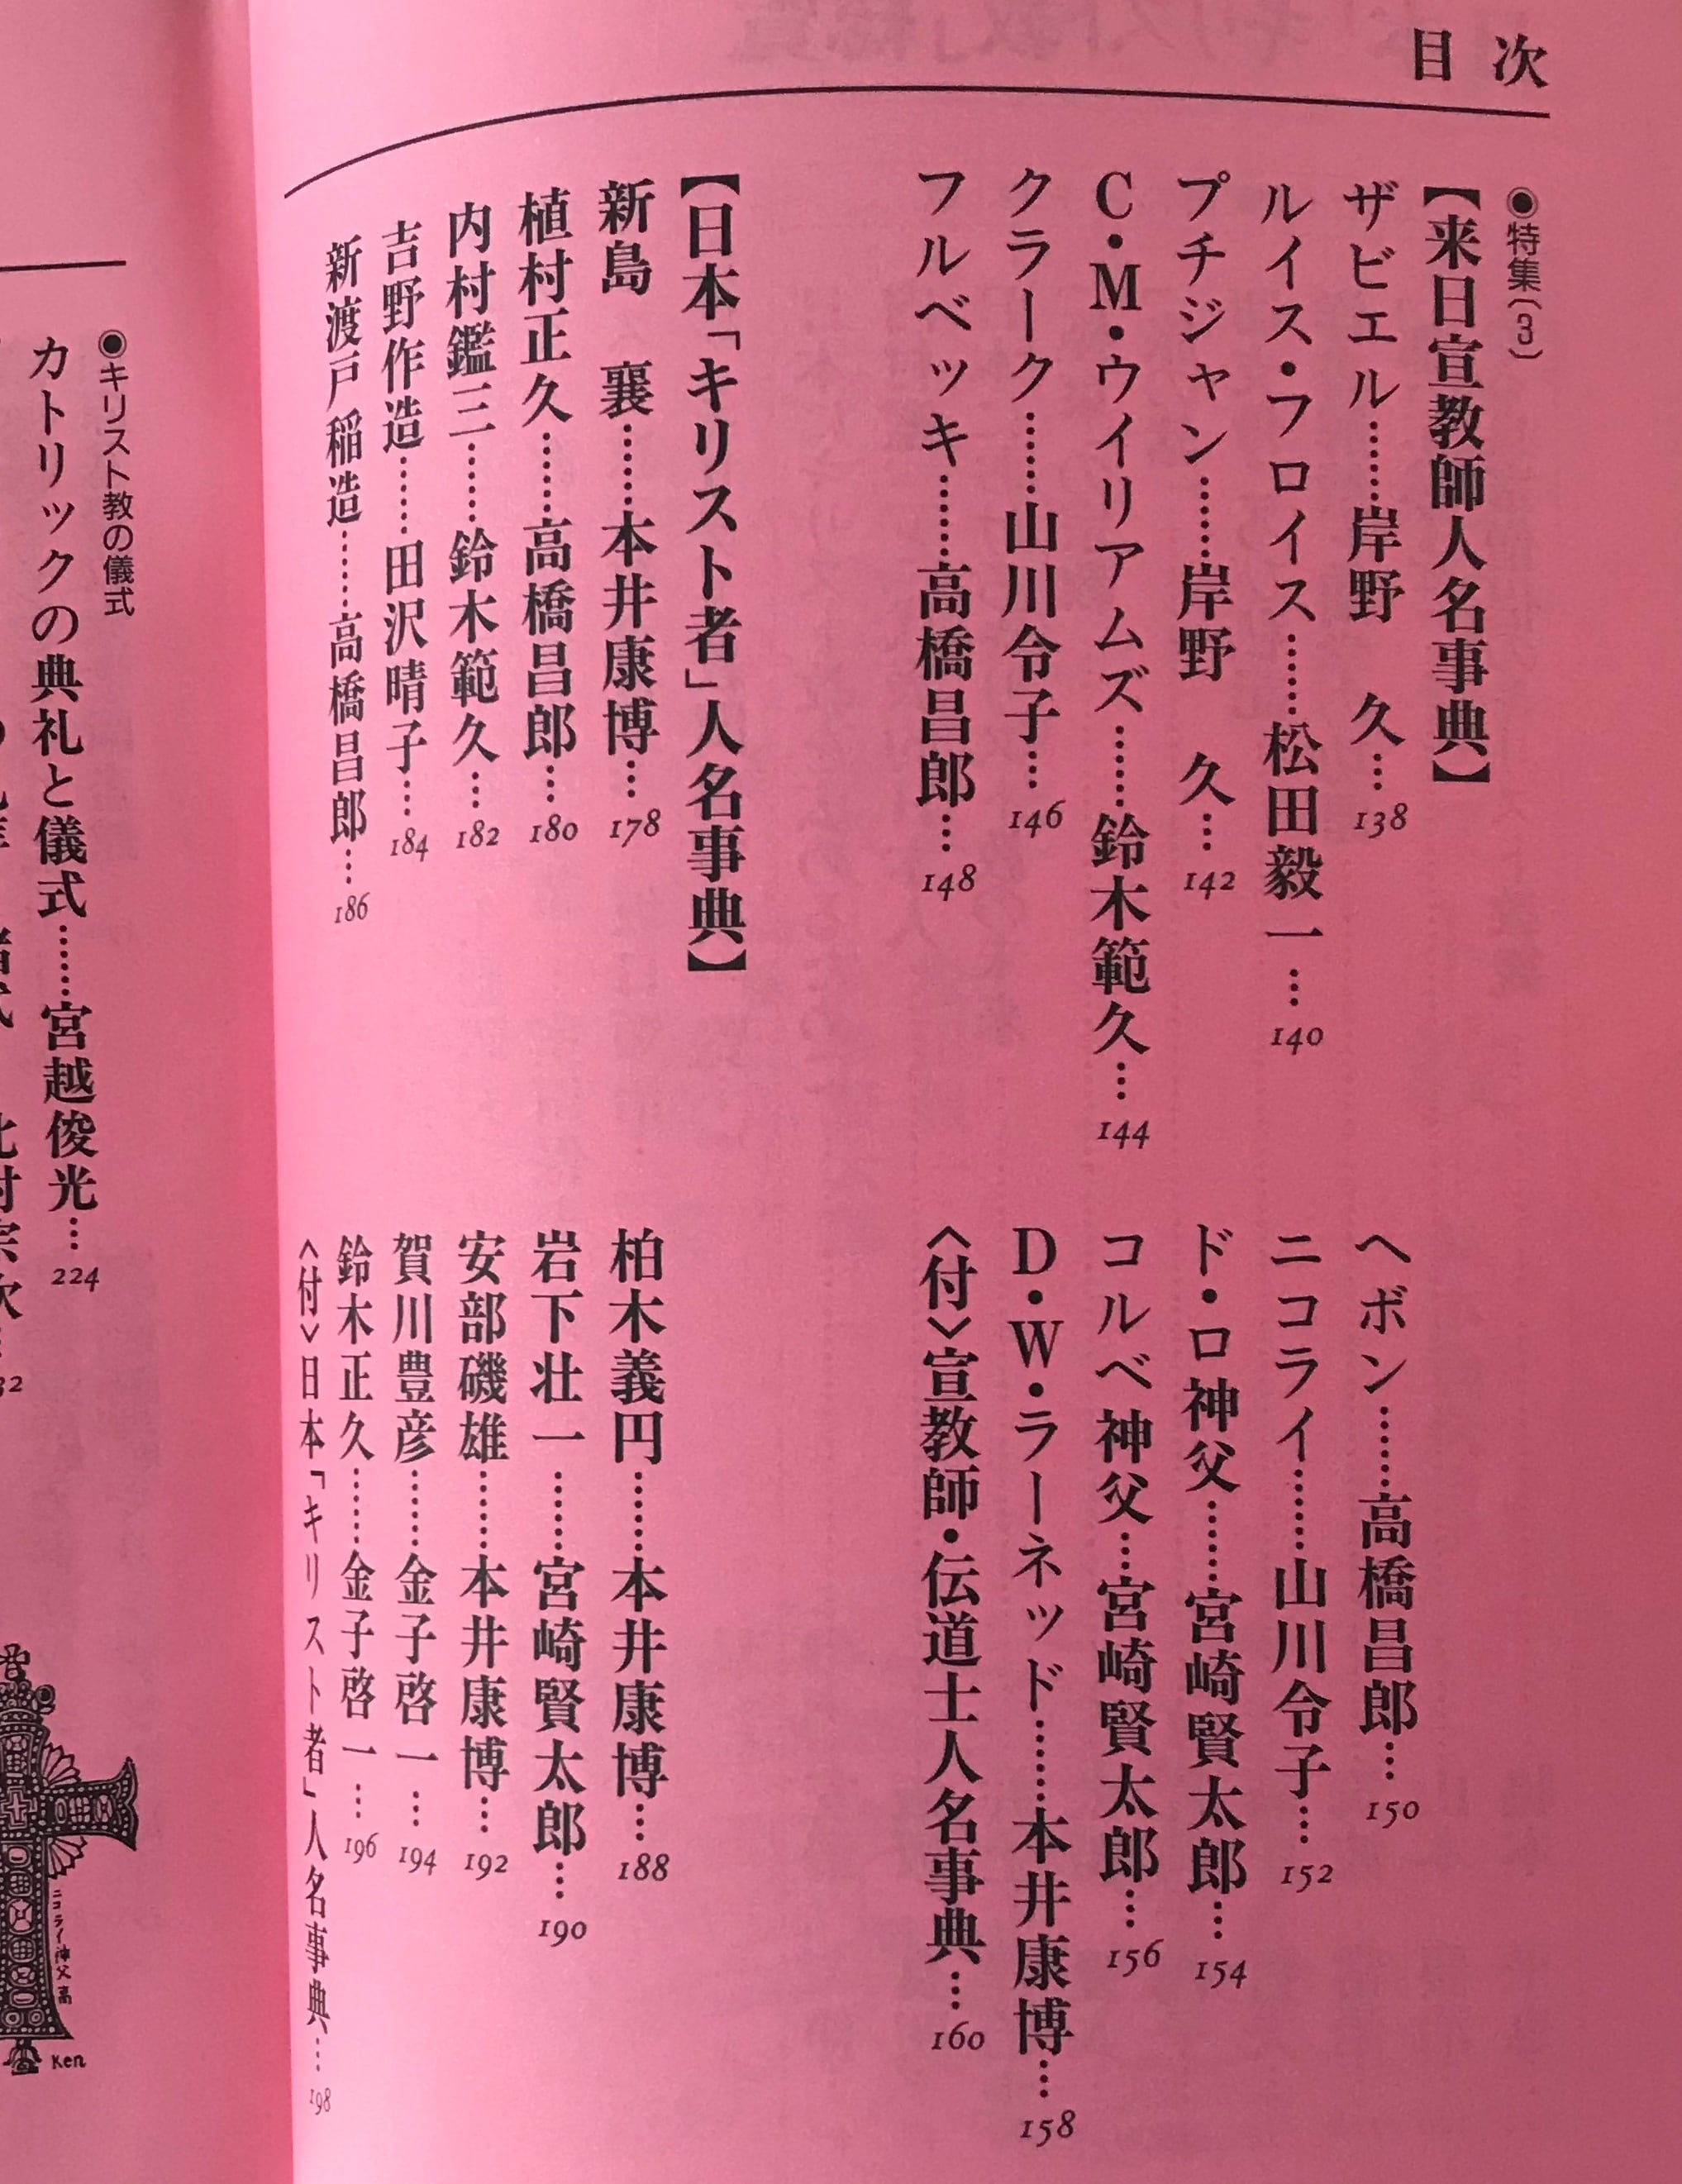 目次
●特集(3)
【来日宣教師人名事典】
ザビエル……岸野　久…138
ルイス・フロイス……松田毅一…140
プチジャン……岸野　久…142
C・M・ウイリアムズ……鈴木範久…144
クラーク……山川令子…146
フルベッキ……高橋昌郎…148
ヘボン……高橋昌郎…150
ニコライ……山川令子…152
ド・ロ神父……宮崎賢太郎…154
コルベ神父…宮崎賢太郎…156
D・W・ラーネッド……本井康博…158
〈付〉宣教師・伝道士人名事典…160
【日本「キリスト者」人名事典】
新島　襄……本井康博…178
植村正久……高橋昌郎…180
内村鑑三……鈴木範久…182
吉野作造……田沢晴子…184
新渡戸稲造……高橋昌郎…186
柏木義円……本井康博…188
岩下壮一……宮崎賢太郎…190
安部磯雄……本井康博…192
賀川豊彦……金子啓一…194
鈴木正久……金子啓一…196
〈付〉日本「キリスト者」人名事典…198
●キリスト教の儀式
カトリックの典礼と儀式……宮越俊光…224
ニコライ神父
Ken